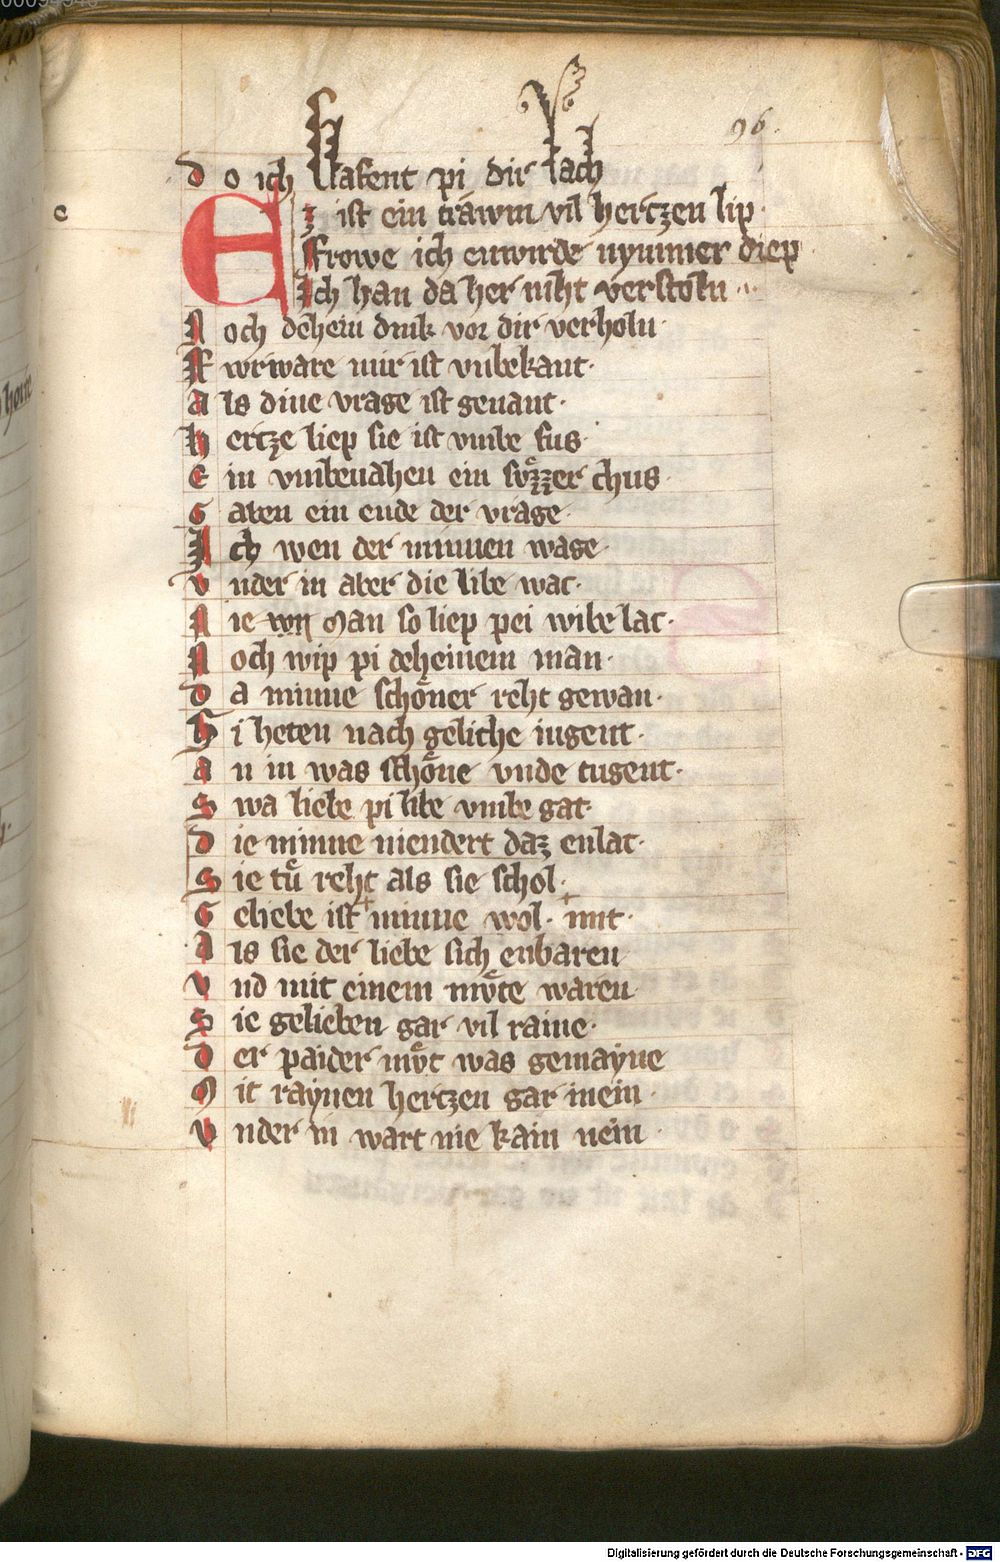 96.
do ich slafent pi dir lach
Ez ist ein trawm vil hertzen lip.
Frowe ich enwirde nymmer diep
Ich han da her niht verstoln.
Noch dehein dink vor dir verholn.
Furware mir ist vnbekant.
Als dine vrage ist genant.
hertze liep sie ist vmbe sus.
Ein vmbevahen ein suͦzzer chus.
Gaben ein ende der vrage.
Ich wen der minnen wage.
vnder in aber die libe wac.
Nie man so liep pei wibe lac.
Noch wip pi deheinem man.
da minne schoͤner reht gewan.
Si heten nach geliche iugent.
an in was schoͤne vnde tugent.
Swa liebe pi libe vmbe gat.
die minne niendert daz enlat.
Sie tuͤ reht als sie schol.
Geliebe ist minne wol. mit.
Als sie der liebe sich enbaren
vnd mit einem muͤte waren.
Sie gelieben gar vil raine.
der paider muͤt was gemayne
Mit raynen hertzen gar inein.
vnder in wart nie kain nein.
e
Digitalisierung gefördert durch die Deutsche Forschungsgemeinschaft - DFG